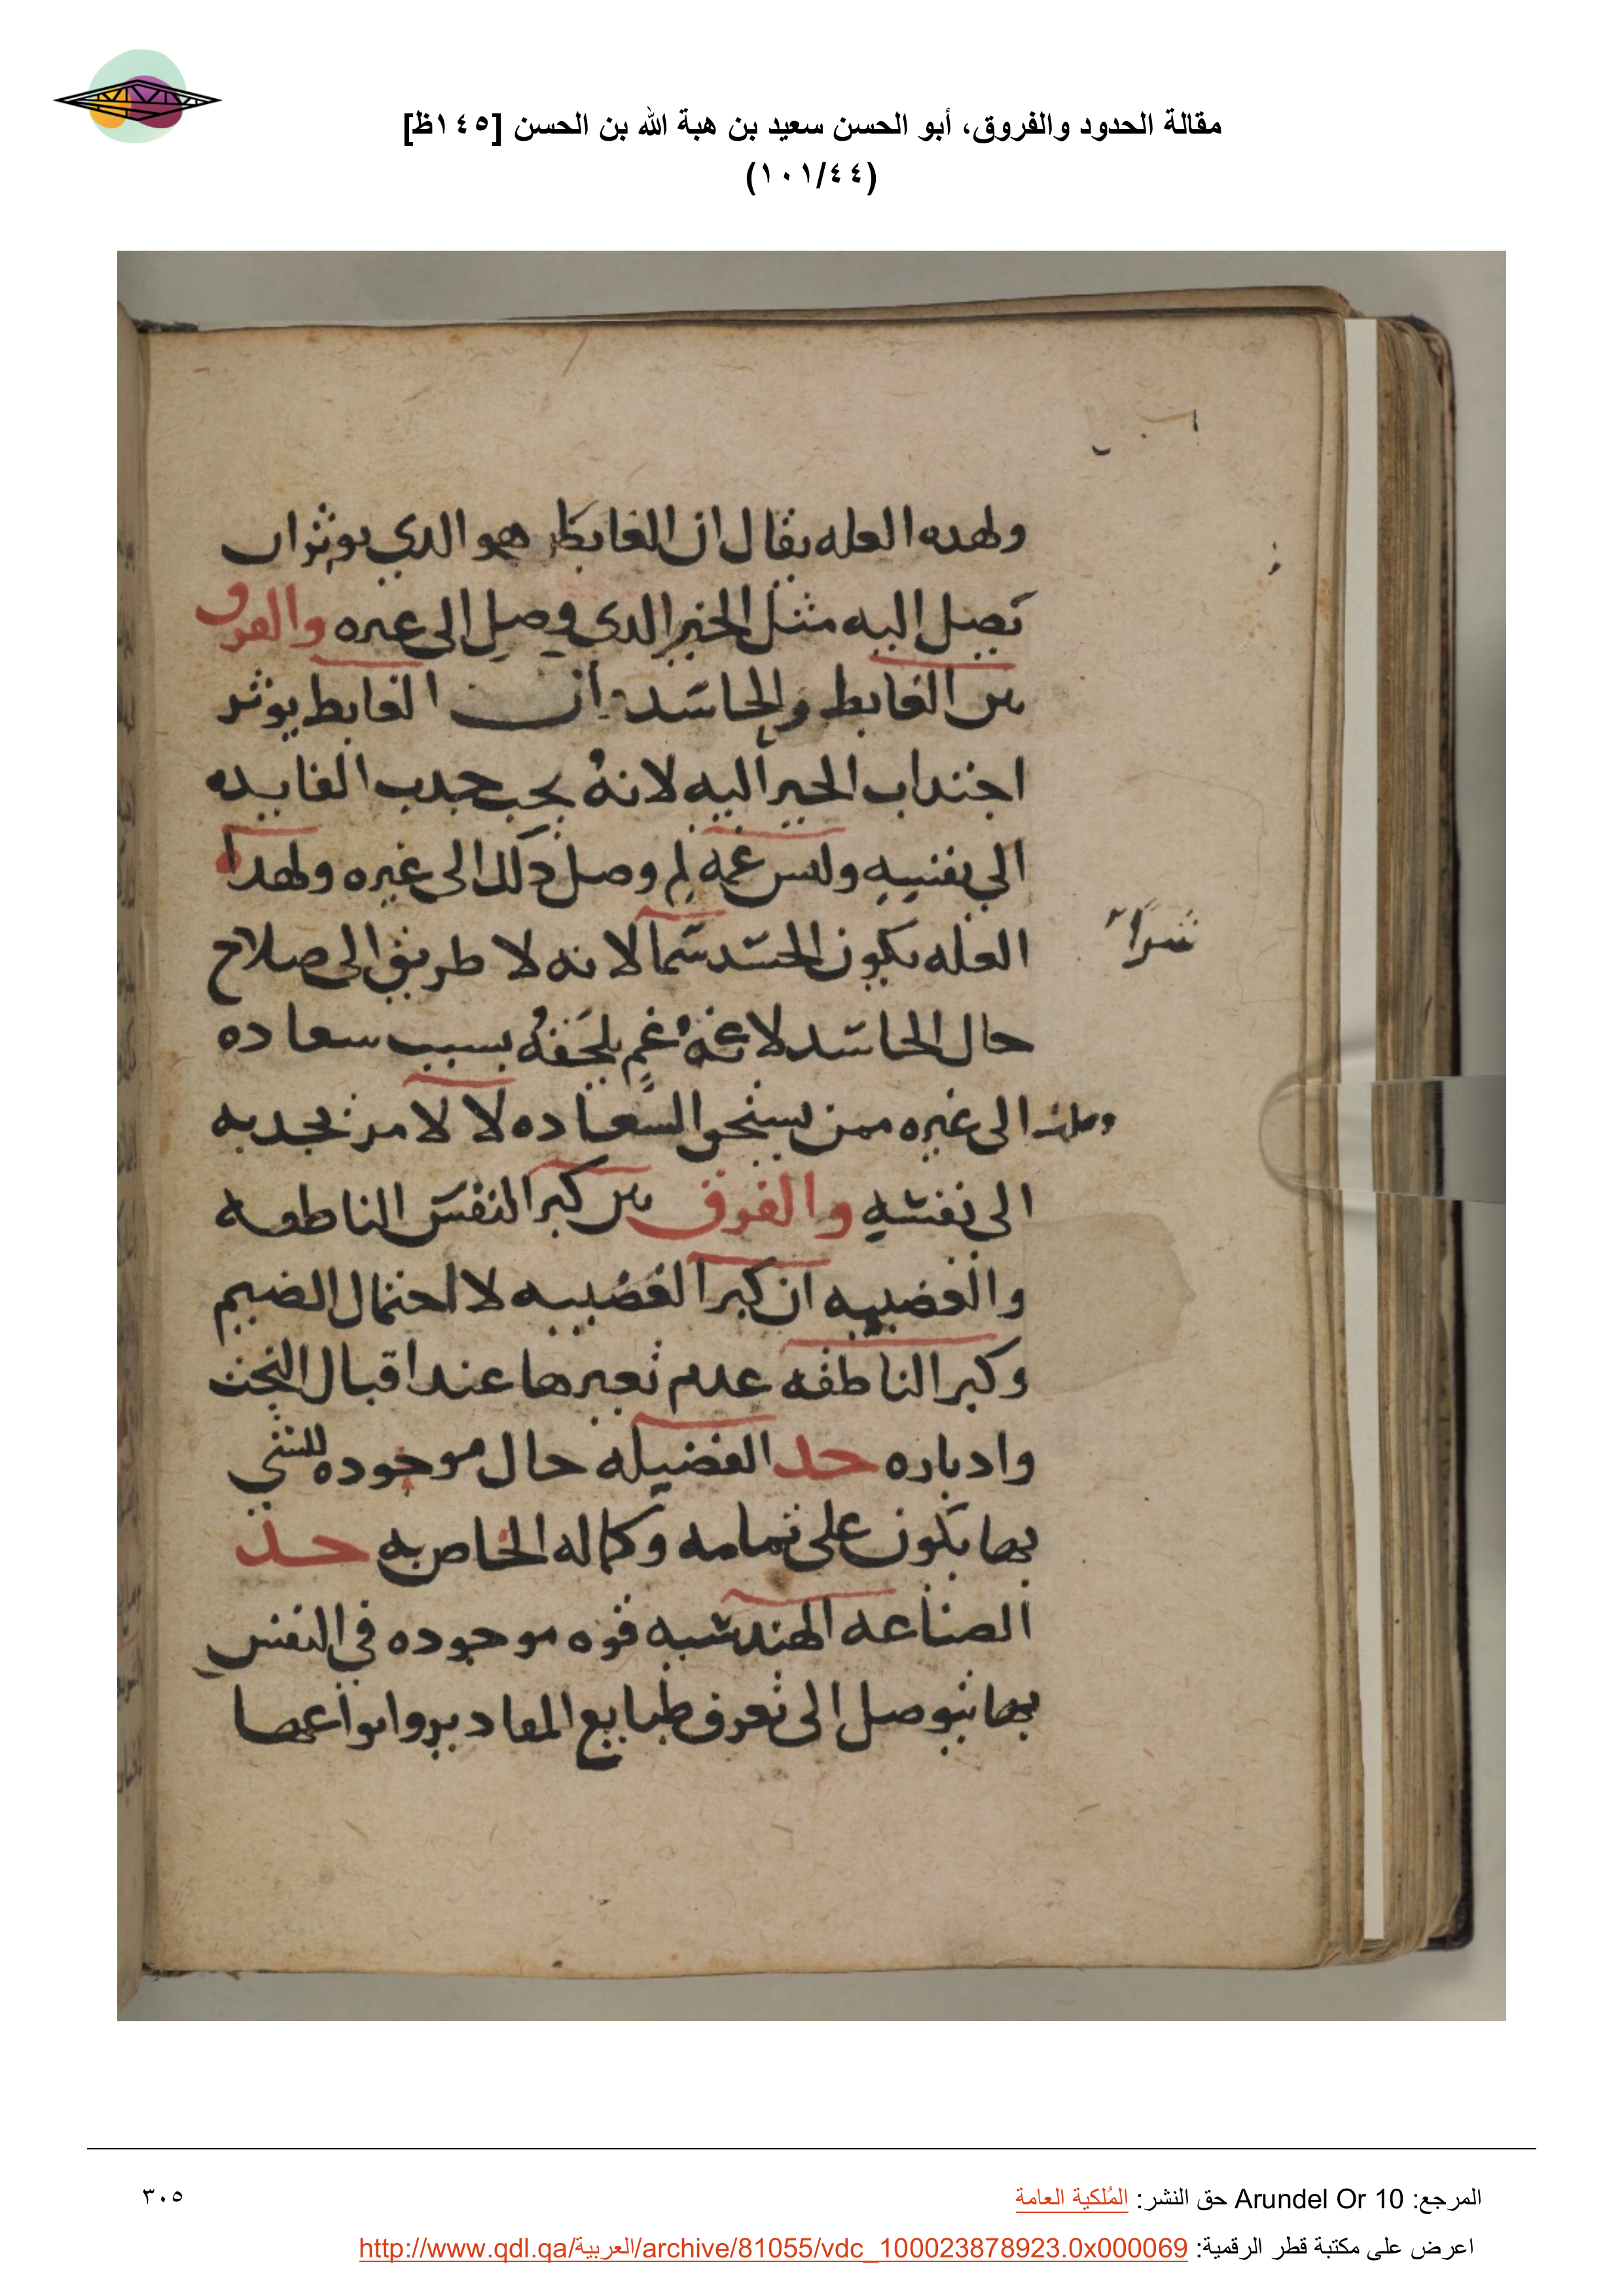 مقالة الحدود والفروق، أبو الحسن سعيد بن هبة الله بن الحسن [١٤٥ظ]
(١٠١/٤٤)
ولهده العله يقال ان الغابط هو الدي يوثر ان
تصل اليه مثل الخير الدي وصل الى غيره والفرق
بين الغابط والحاسد ان الغابط يوثر
اجتداب الخير اليه لانه يحب جدب الفايده
الي نفسه وليس غمه لم وصل دلك الى غيره ولهدا
العله يكون الحسد شرا لانه لا طريق الى صلاح
شرًا
حال الحاسد لا غمه غم يلحقه بسبب سعاده
وصلت الى غيره ممن يستحق السعاده لا لامر يجدبه
الى نفسه والفرق بين كبر النفس الناطقه
والغضبيه ان كبر الغضبيه لا احتمال الضيم
وكبر الناطقه عدم تغيرها عند اقبال البخت
وادباره حد الفضيله حال موجوده للشي
بها يكون على تمامه وكماله الخاص به حد
الصناعه الهندسيه قوه موجوده في النفس
بها يتوصل الى تعرف طبايع المقادير وانواعها
المرجع: Arundel Or 10 حق النشر: المُلكية العامة
٣٠٥
اعرض على مكتبة قطر الرقمية: http://www.qdl.qa/العربية/archive/81055/vdc_100023878923.0x000069